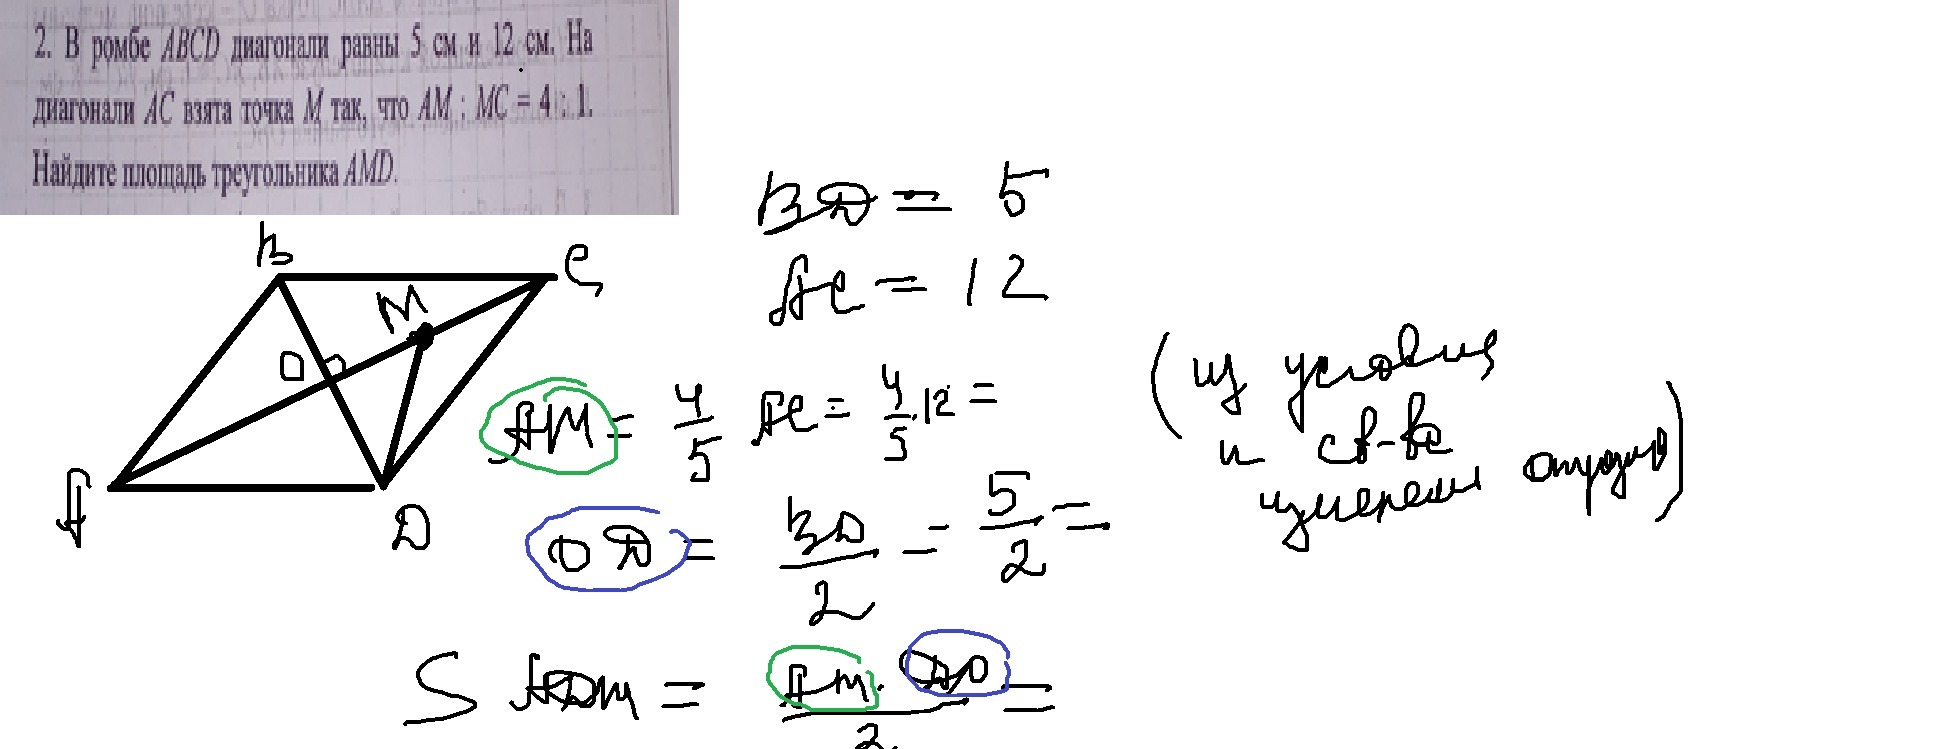 2. В ромбе ABCD диагонали равны 5 см и 12 см. На
диагонали AC взята точка M так, что AM : MC = 4 : 1.
Найдите площадь треугольника AMD.
B
C
M
O
A
D
ВД = 5
AC = 12
AM = 4/5 AC = 4/5 · 12 =
(из условия
и св-ва
измерения отрезков)
OД = BD/2 = 5/2 =
S ADM = AM · ДO / 2 =